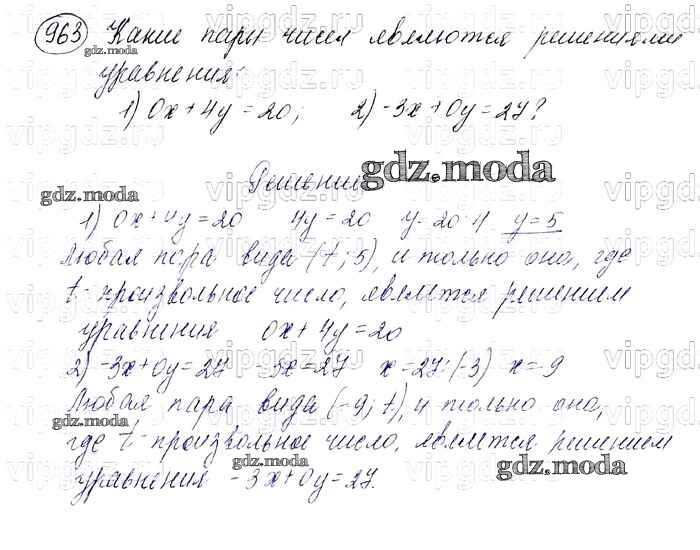 963 Какие пары чисел являются решениями
уравнения:
1) 0x + 4y = 20; 2) -3x + 0y = 27?
Решение
1) 0x + 4y = 20 4y = 20 y = 20:4 y = 5
Любая пара вида (t; 5), и только она, где
t - произвольное число, является решением
уравнения 0x + 4y = 20
2) -3x + 0y = 27 -3x = 27 x = 27:(-3) x = -9
Любая пара вида (-9; t), и только она,
где t - произвольное число, является решением
уравнения -3x + 0y = 27.